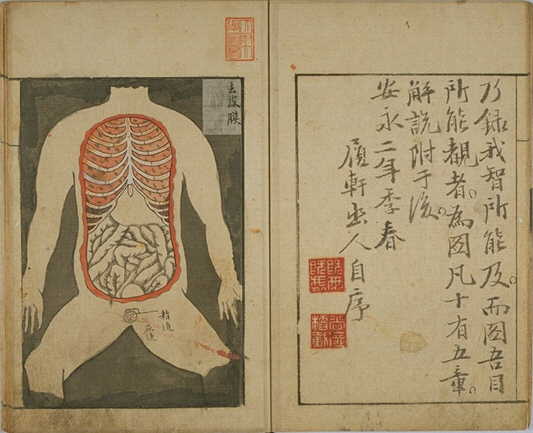 乃録我智所能及。而図吾目
所能観者。為図凡十有五章。
解説附于後。
安永二年季春
履軒幽人自序
去皮膜
精道